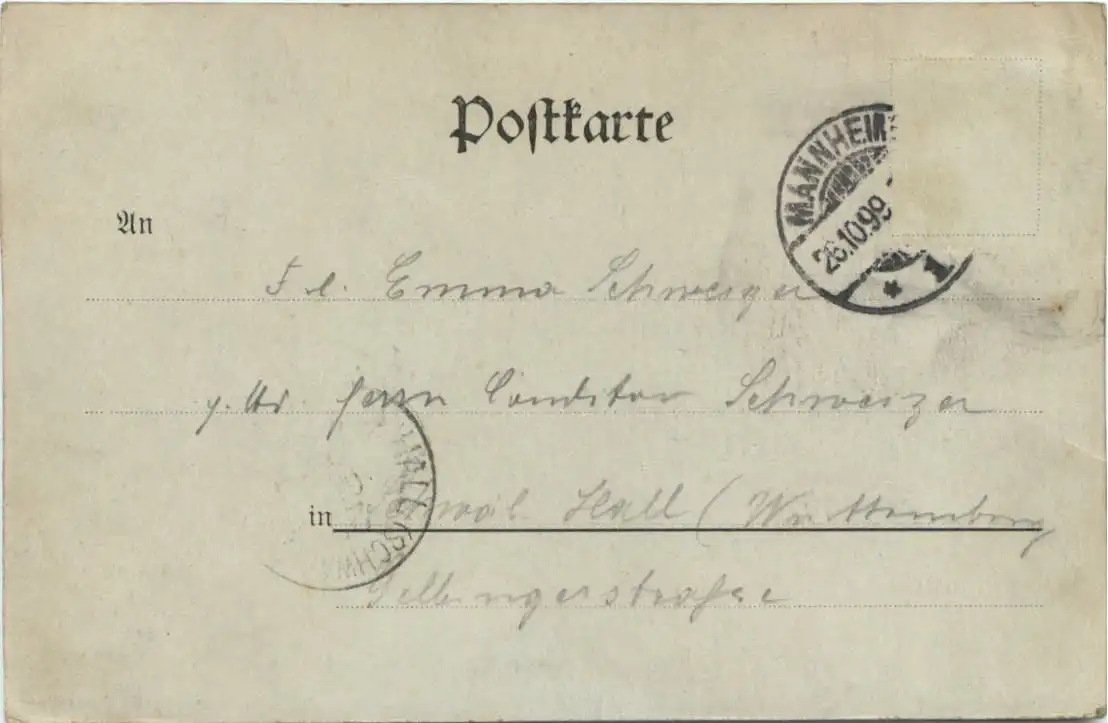 Postkarte
MANNHEIM
26.10.99
* 1
An
Emma Schweizer
Herrn Conditor Schweizer
HALL (SCHW
in Schwäb. Hall (Württemberg
Gelbingerstraße